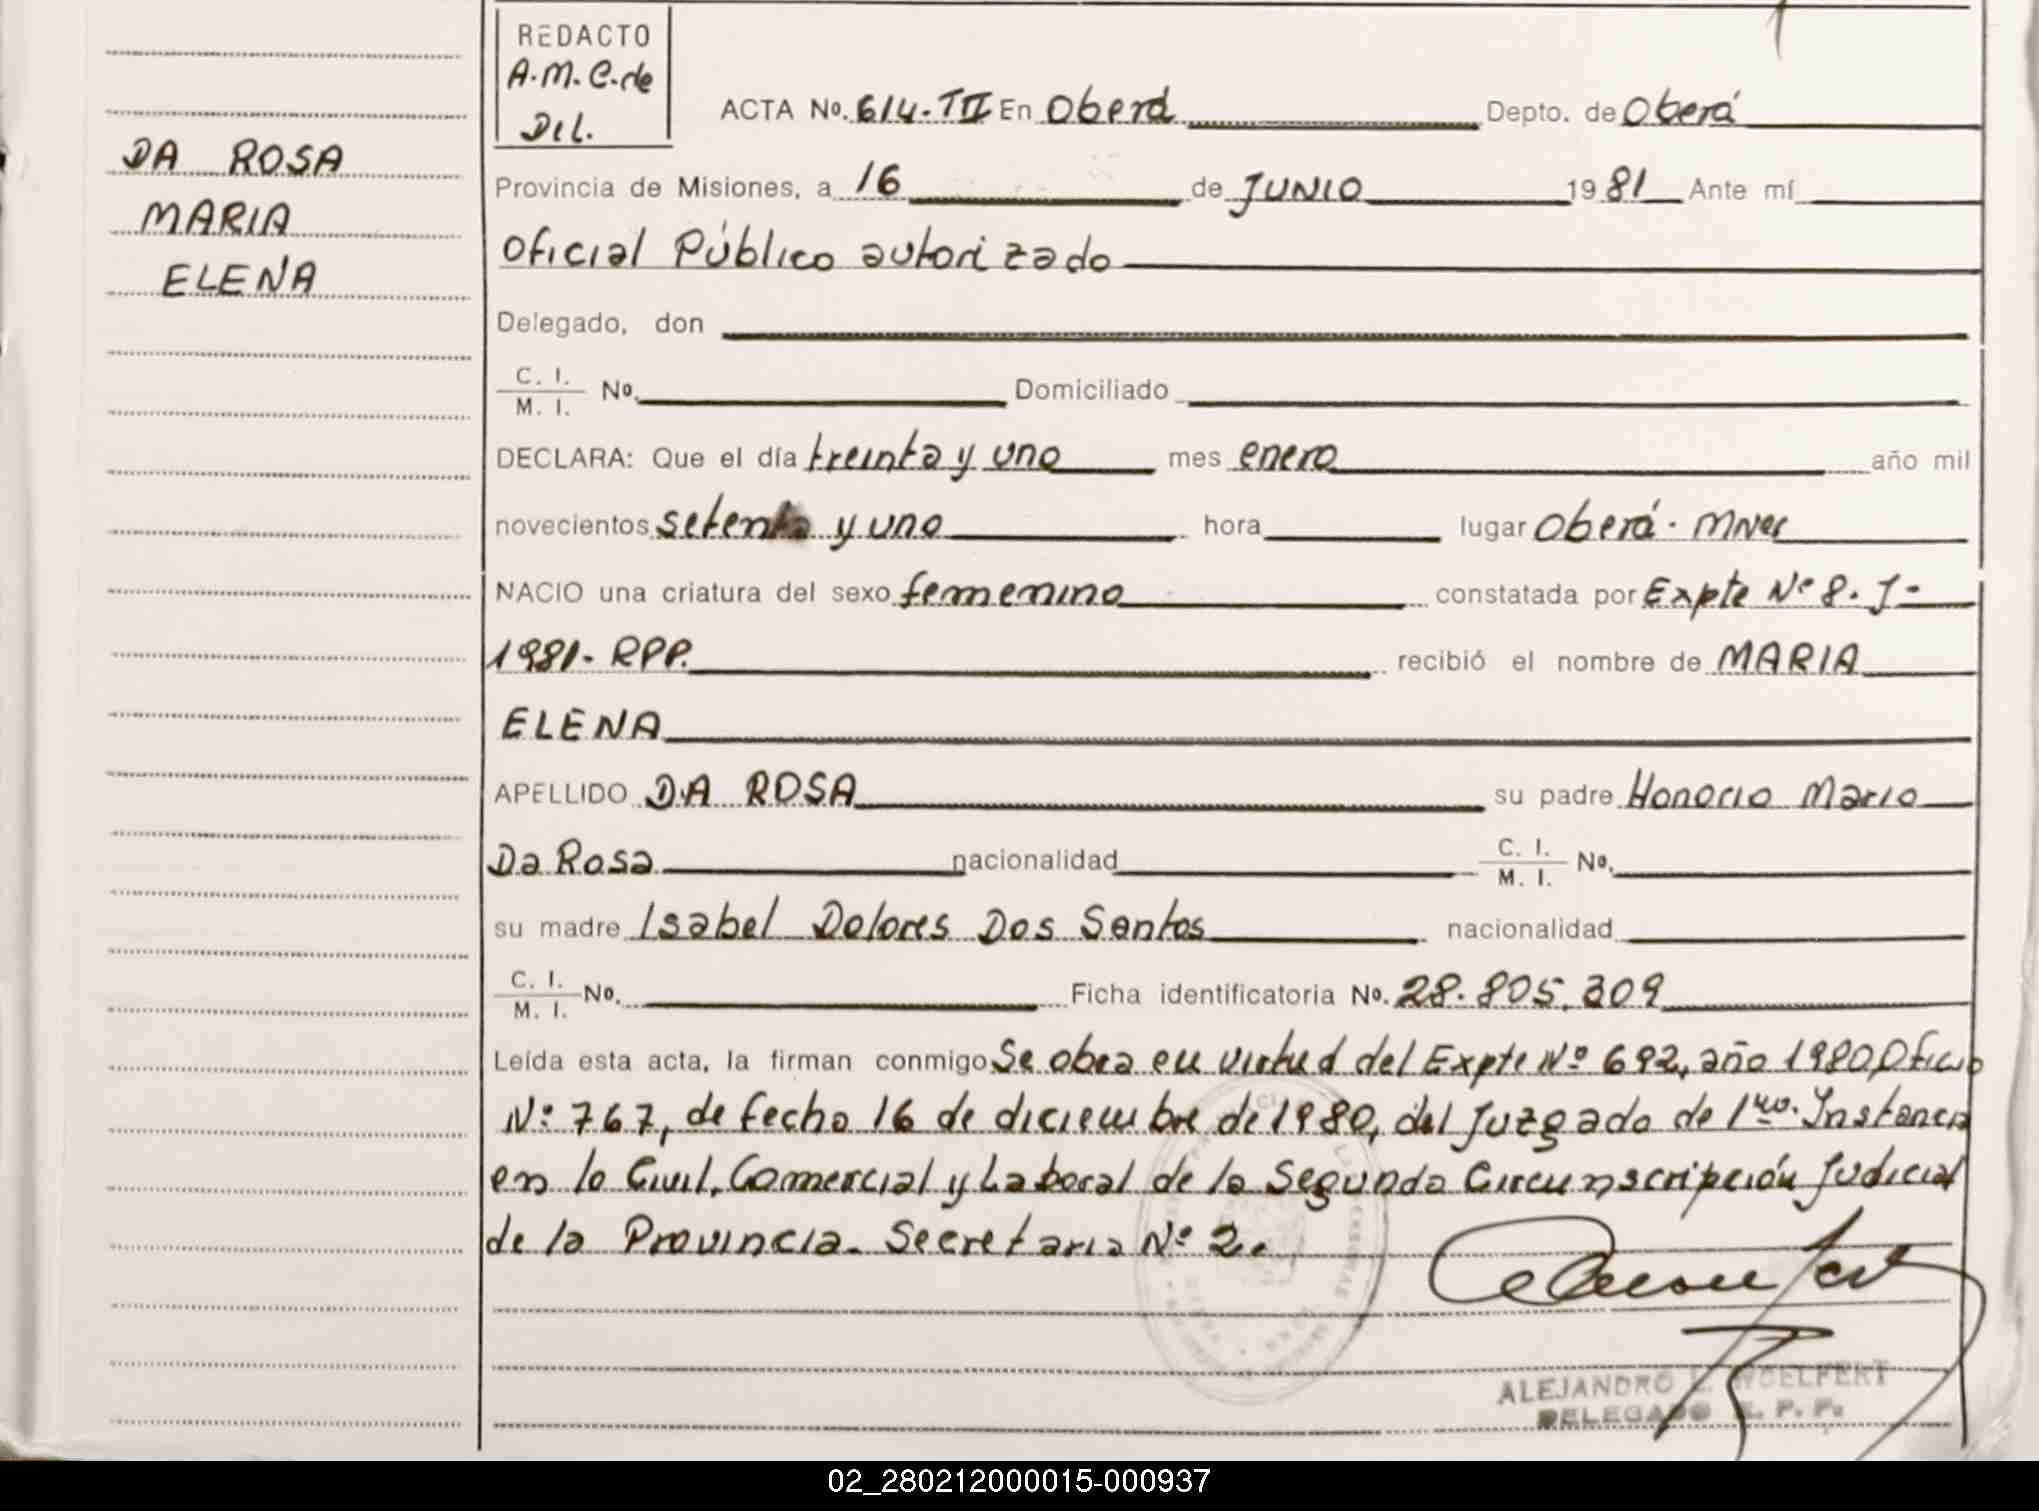 REDACTO
A.M.C. de
Del.
DA ROSA
MARIA
ELENA
ACTA No. 614-TII En Oberá Depto. de Oberá
Provincia de Misiones, a 16 de JUNIO 1981 Ante mí
Oficial Público autorizado
Delegado, don
C. I.
M. I. No. Domiciliado
DECLARA: Que el día treinta y uno mes enero año mil
novecientos setenta y uno hora lugar Oberá - Mnes
NACIO una criatura del sexo femenino constatada por Expte Nº 8. J-
1981- RPP. recibió el nombre de MARIA
ELENA
APELLIDO DA ROSA su padre Honorio Mario
Da Rosa nacionalidad C. I.
M. I. No.
su madre Isabel Dolores Dos Santos nacionalidad
C. I.
M. I. No. Ficha identificatoria No. 28.805.309
Leída esta acta, la firman conmigo Se obra en virtud del Expte Nº 692, año 1980, Oficio
Nº 767, de fecha 16 de diciembre de 1980, del Juzgado de 1ra. Instancia
en lo Civil, Comercial y Laboral de la Segunda Circunscripción Judicial
de la Provincia. Secretaria Nº 2.
ALEJANDRO L. WOELFERT
DELEGADO R. P. P.
02_280212000015-000937